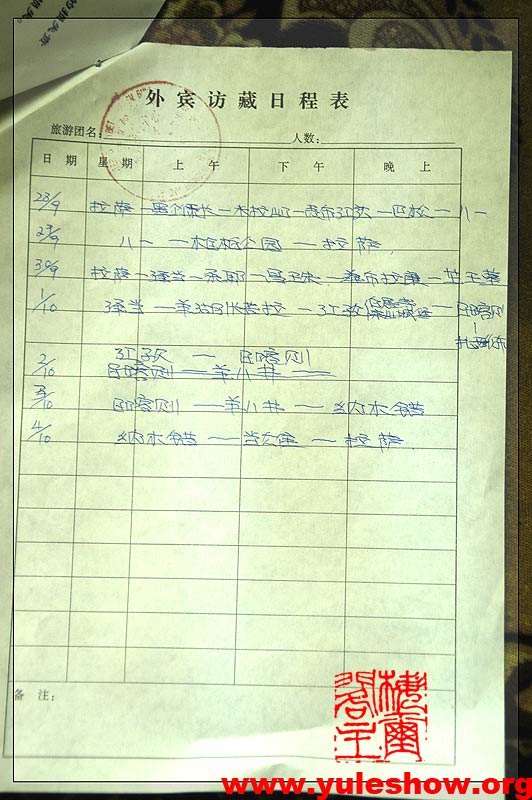 外宾访藏日程表
旅游团名: 人数:
日期 星期 上午 下午 晚上
28/9 拉萨 — 米拉山 — 巴松 — 八一
29/9 八一 — 公园 — 拉萨
30/9 拉萨 — 泽当 — 桑耶 — 昌珠 — 雍布拉康 — 藏王墓
1/10 泽当 — 羊湖 — 江孜 — 日喀则
2/10 江孜 — 日喀则
日喀则 — 羊八井
3/10 日喀则 — 羊八井 — 纳木错
4/10 纳木错 — 当雄 — 拉萨
备注:
www.yuleshow.org